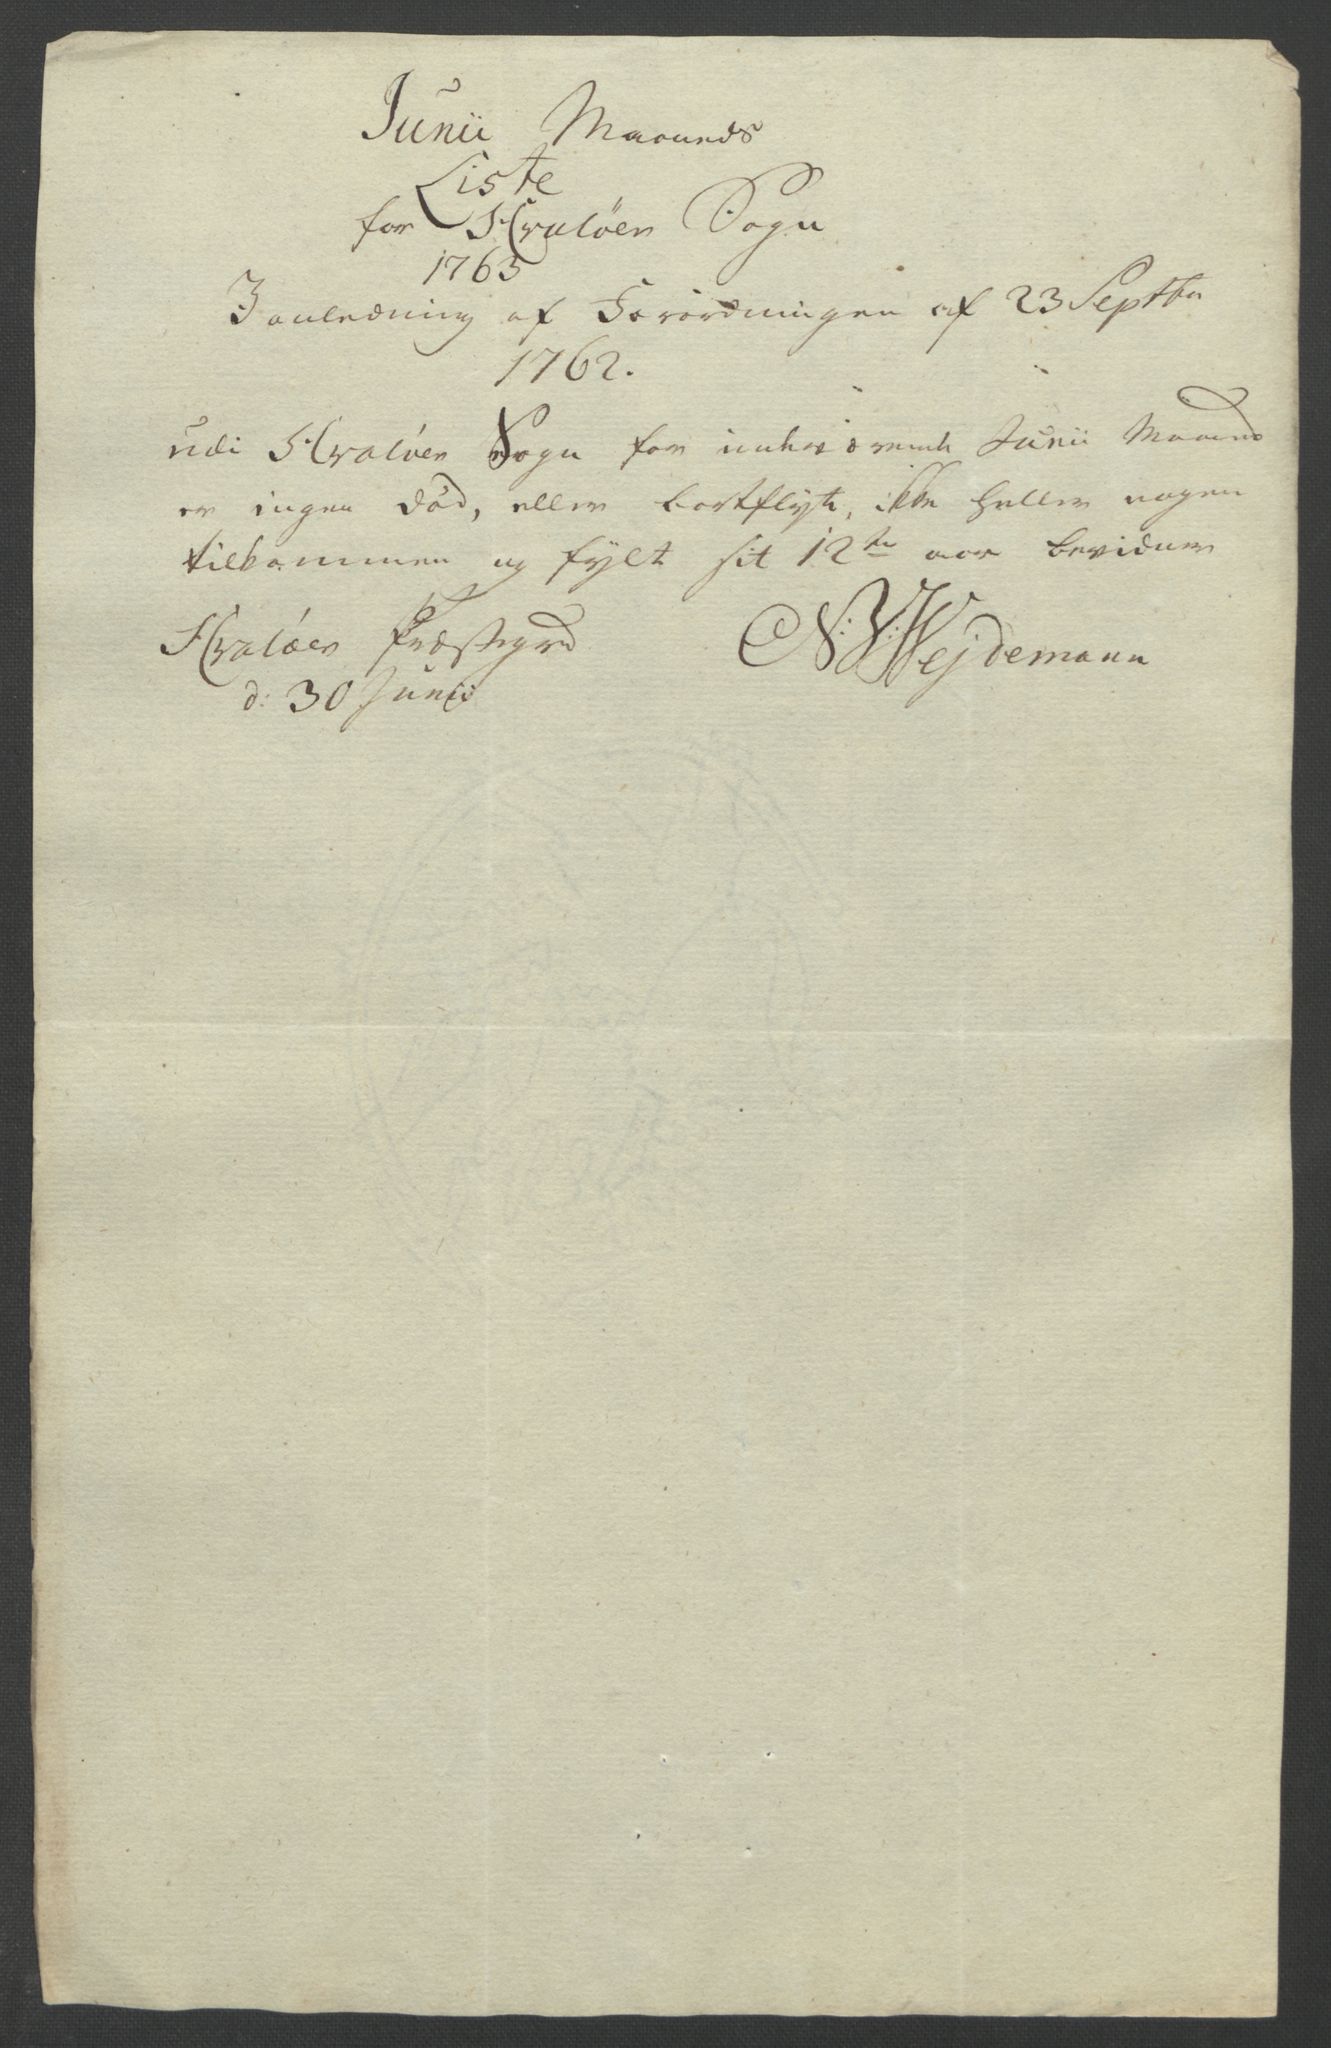 Junii Maaneds
Liste
for Hvalöer Sogn
1763
I anledning af Forordningen af 23 Septbr
1762.
udi Hvaløer Sogn for indeværende Junii Maaned
er ingen död, eller bortflyt, ikke heller nogen
tilkommen og fylt sit 12te aar bevidner
Hvaløer Præstegrd
N: V: Wejdemann
d: 30 Junii